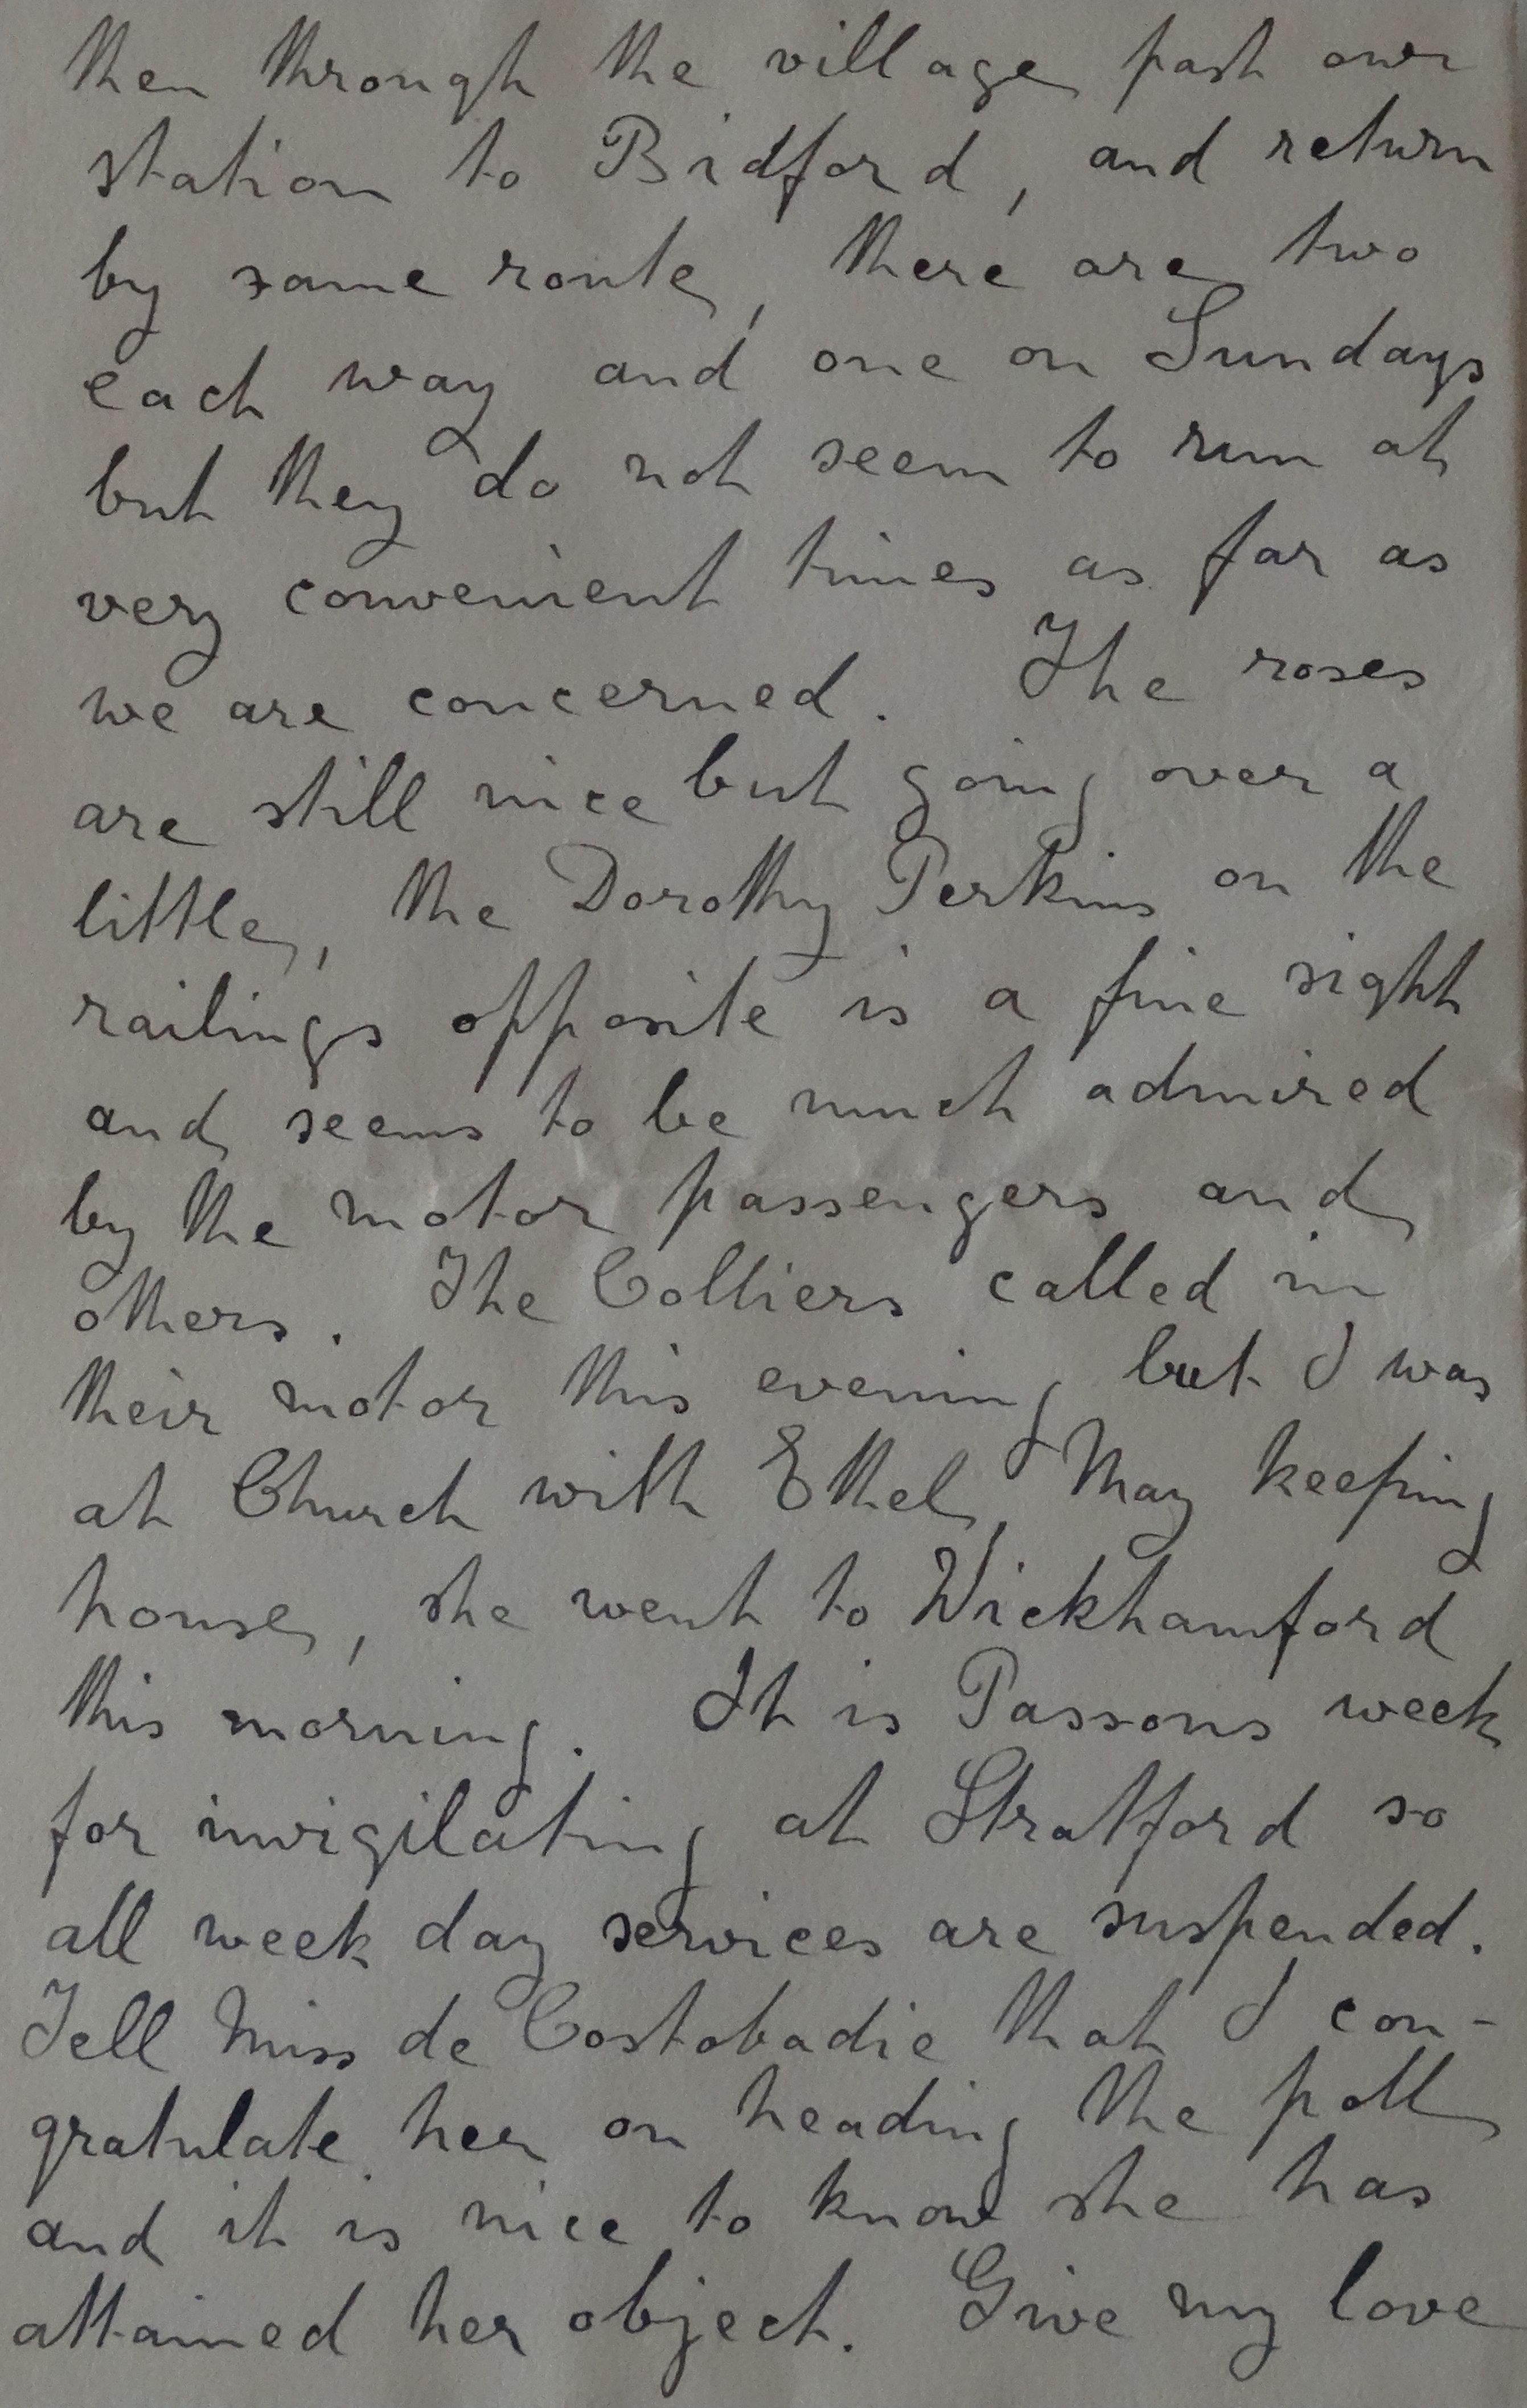 then through the village past our
station to Bidford, and return
by same route, there are two
each way and one on Sundays
but they do not seem to run at
very convenient times as far as
we are concerned. The roses
are still nice but going over a
little, the Dorothy Perkins on the
railings opposite is a fine sight
and seems to be much admired
by the motor passengers and
others. The Colliers called in
their motor this evening but I was
at Church with Ethel, May keeping
house, she went to Wickhamford
this morning. It is Passons week
for invigilating at Stratford so
all week day services are suspended.
Tell Miss de Costobadie that I con-
gratulate her on heading the poll
and it is nice to know she has
attained her object. Give my love